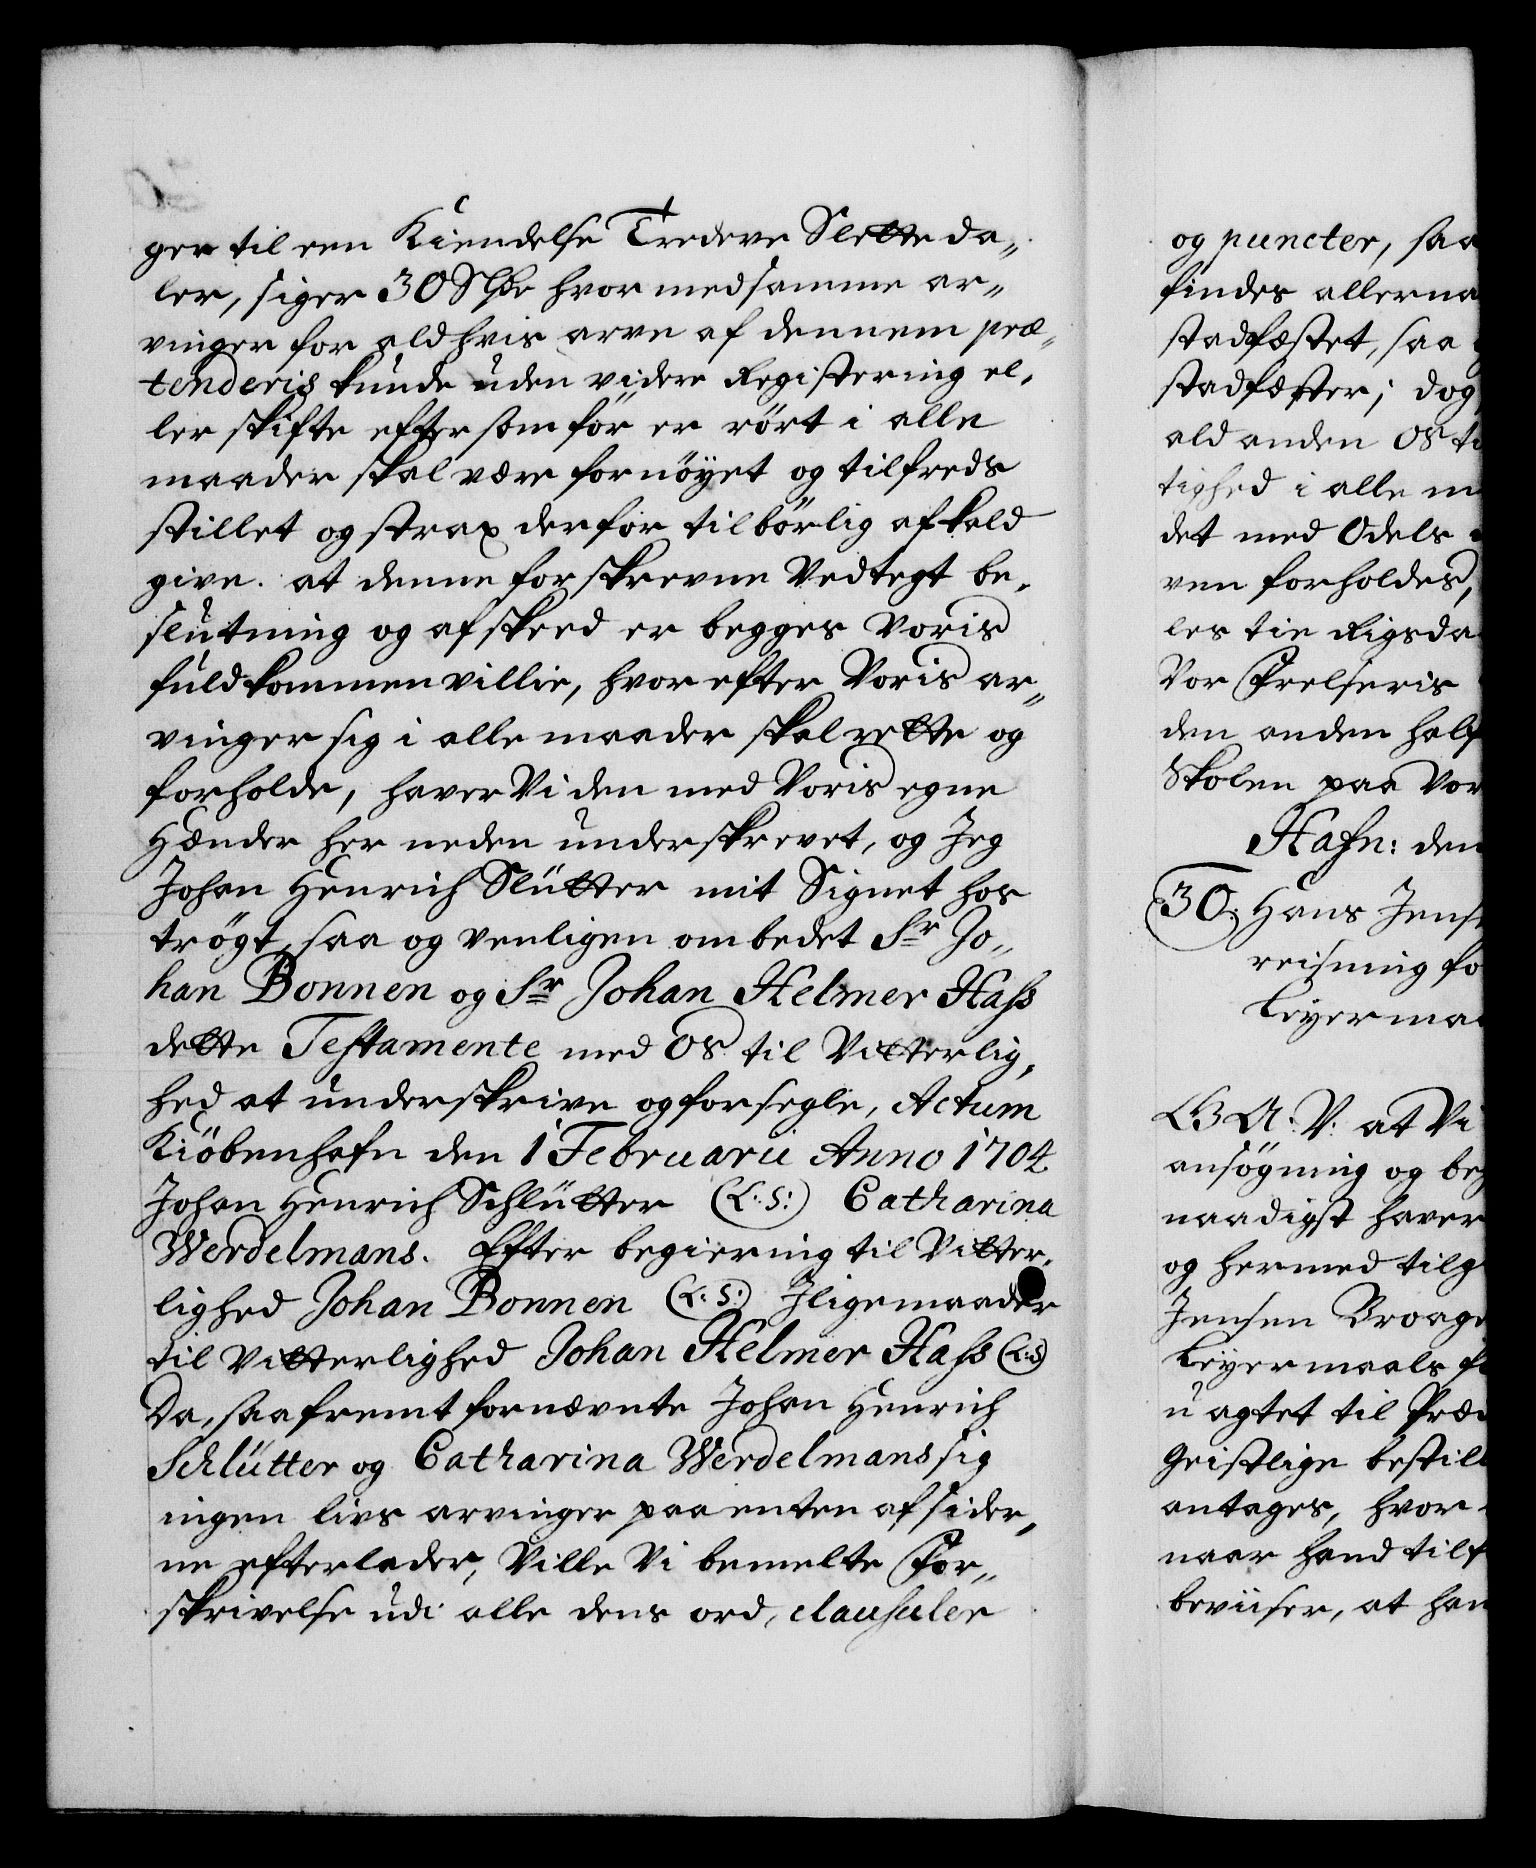 ger til een Kiendelse Tredeve Slette da„
ler, siger 30 Sldr hvormed samme ar„
vinger for ald hvis arve af dennem præ„
tenderis kunde uden videre Registering el„
ler skifte efter som för er rört i alle
maader skal være fornöyet og tilfreds
stillet og strax derfor tilbörlig afkald
give. at denne forskrevne Vedtegt be„
slutning og afskeed er begges Voris
fuldkommen villie, hvorefter Voris ar„
vinger sig i alle maader skal rette og
forholde, haver Vi den med Voris egne
Hænder her neden underskrevet, og Jeg
Johan Henrich Slütter mit Signet hos
trögt, saa og venligen ombedet Sr Jo„
han Bonnen og Sr Johan Helmer Hass
dette Testamente med Os til Vitterlig„
hed at underskrive og forsegle, Actum
Kiöbenhafn den 1 Februarii Anno 1704
Johan Henrich Schlütter (L:S:) Catharina
Werdelmans. Efter begiering til Vitter„
lighed Johan Bonnen (L:S:) Jligemaader
til Vitterlighed Johan Helmer Hass (L:S)
Da, saafremt fornævnte Johan Henrich
Schlütter og Catharina Werdelmans sig
ingen livs arvinger paa enten af sider„
ne efterlader, Ville Vi bemelte For„
skrivelse udi alle dens ord, clausuler
og puncter, saa
findes allerna
stadfæstet, saa
stadfæster; dog
ald anden Os ti
tighed i alle m
det med Odels
ven forholdes,
les tie Rigsda
Vor Frelseris
den anden half
Skolen paa Vor
Hafn: den
30. Hans Jens
reisning fo
Leyermaa
G A: V: at Vi
ansögning og beg
naadigst haver
og hermed tilg
Jensen Broage
Leyermaals f
uagtet til Præ
Geistlige bestill
antages, hvor
naar hand tilf
beviiser, at han